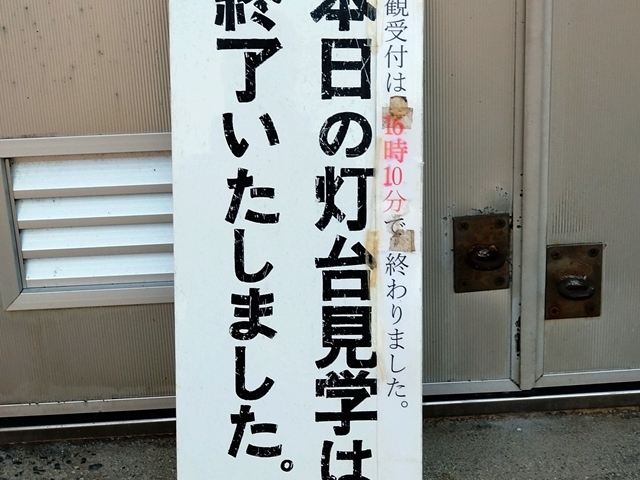 観受付は16時10分で終わりました。
本日の灯台見学は
終了いたしました。